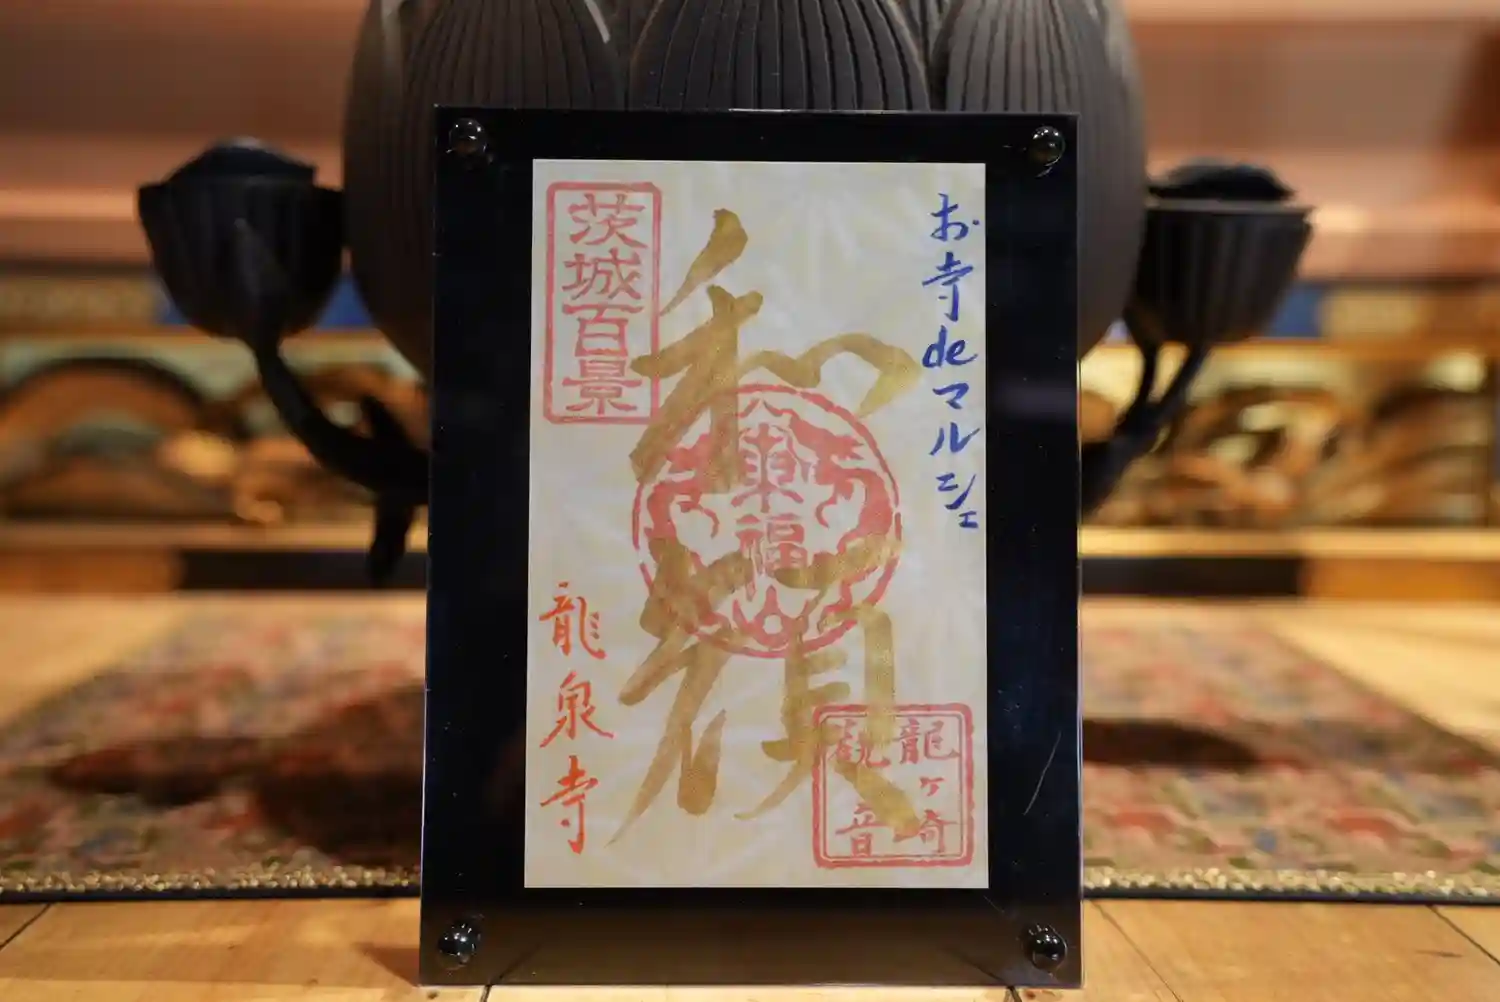 お寺deマルシェ
和顔
東福山
茨城百景
龍泉寺
龍ヶ崎
観音